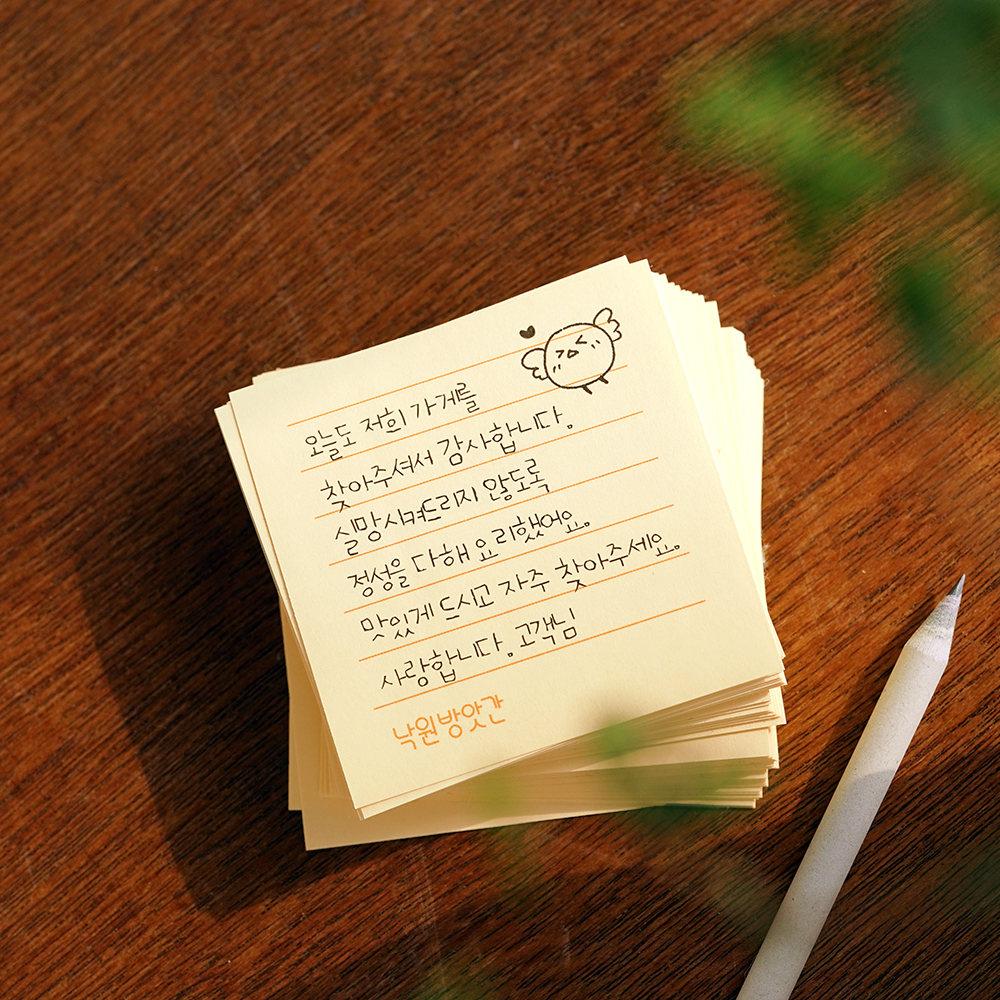 오늘도 저희 가게를
찾아주셔서 감사합니다.
실망시켜드리지 않도록
정성을 다해 요리했어요.
맛있게 드시고 자주 찾아주세요.
사랑합니다. 고객님
낙원방앗간